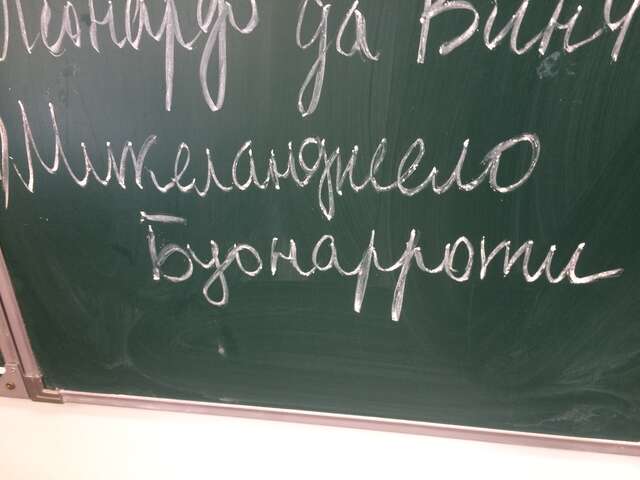 Леонардо да Винч
Микеланджело
Буонарроти